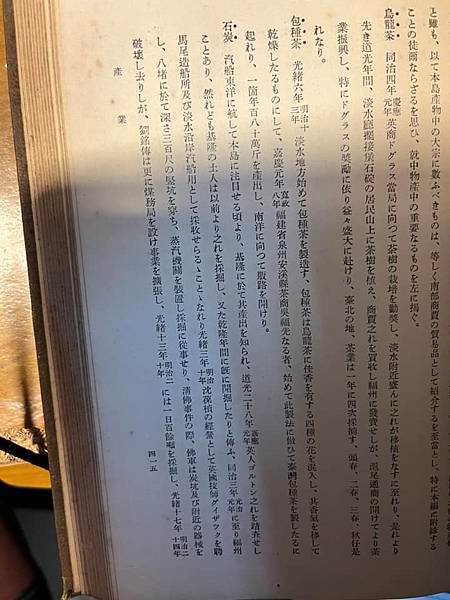 と雖も、以て本島產物中の大宗に數ふべきものは、等しく南部商賈の貿易品として紹介するを至當とし、特に本編に附錄する
ことの徒爾ならざるを思ひ、就中物產中の重要なるものを左に揭ぐ。
烏龍茶 同治四年慶應元年英商ドグラス當局に向つて茶樹の栽培を勸奬し、淡水附近盛んに之れが移植をなすに至れり、是れより
先き道光年間、淡水廳擺接堡石碇の居民山上に茶樹を植え、商賈之れを買收し福州に發賣せしが、滬尾通商の開けてより茶
業振興し、特にドグラスの奬勵に依り益々盛大に赴けり、臺北の地、茶業は一年に四次採摘す、頭春、二春、三春、秋仔是
れなり。
包種茶 光緒六年明治十三年淡水地方始めて包種茶を製造す、包種茶は烏龍茶に佳香を有する四種の花を混入し、其香氣を移して
乾燥したるものにして、嘉慶元年寬政八年福建省泉州安溪縣茶商吳福元なる者、始めて此製法に倣ひて臺灣包種茶を製したるに
起れり、一箇年百八十萬斤を產出し、南洋に向つて販路を開けり。
石炭 汽船東洋に航して本島に注目せる頃より、基隆に於て其產出を知られ、道光二十八年嘉應元年英人ゴルトン之れを踏査せし
ことあり、然れども基隆の土人は以前より之れを採掘し、又た乾隆年間に既に開掘したりと傳ふ、同治三年元治元年に至り福州
馬尾造船所及び淡水沿岸汽船用として採收せらるゝことゝなれり光緒三年明治十年沈葆楨の經營として英國技師ダイザツクを聘
し、八堵に於て深さ三百尺の竪坑を穿ち、蒸汽機關を裝置し採掘に從事せり、清佛事件の際、佛軍は炭坑及び附近の器械を
破壞し去りしが、劉銘傳は更に煤務局を設け事業を擴張し、光緒十三年明治二十年には一日百餘噸を採掘し、光緒十七年明治二十四年
產業
四一五